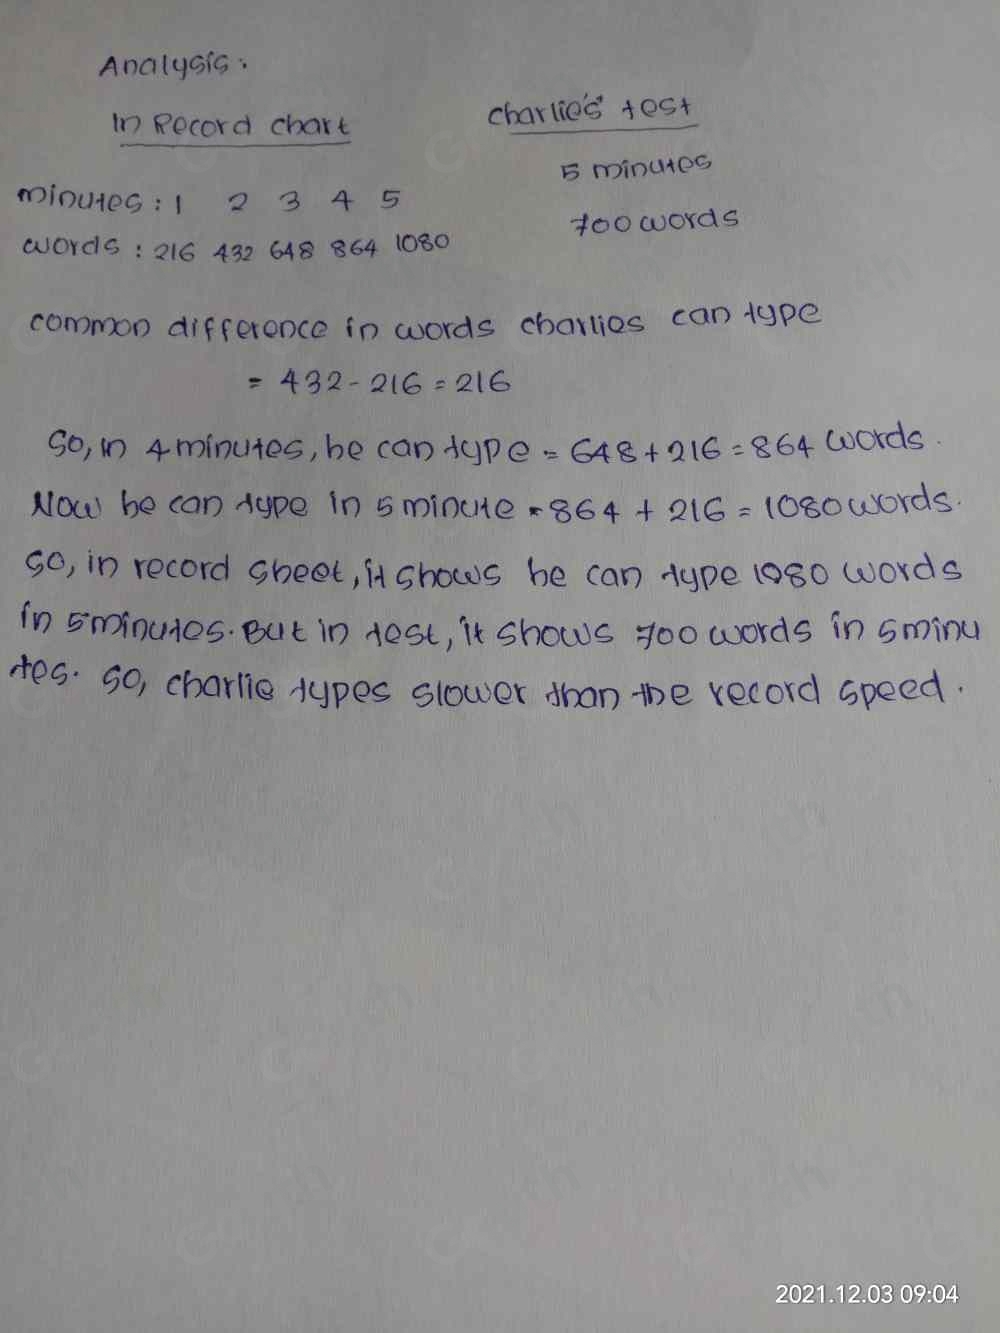 Analysis:
In Record chart
charlie's test
minutes : 1 2 3 4 5
5 minutes
words : 216 432 648 864 1080
700 words
common difference in words charlies can type
= 432 - 216 = 216
So, in 4 minutes, he can type = 648 + 216 = 864 words.
Now he can type in 5 minute = 864 + 216 = 1080 words.
So, in record sheet, it shows he can type 1080 words
in 5 minutes. But in test, it shows 700 words in 5 minu
tes. So, charlie types slower than the record speed.
2021.12.03 09:04